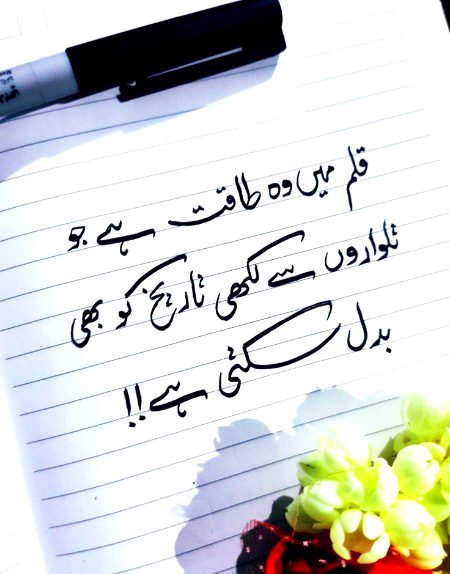 قلم میں وہ طاقت ہے جو
تلواروں سے لکھی تاریخ کو بھی
بدل سکتی ہے!!